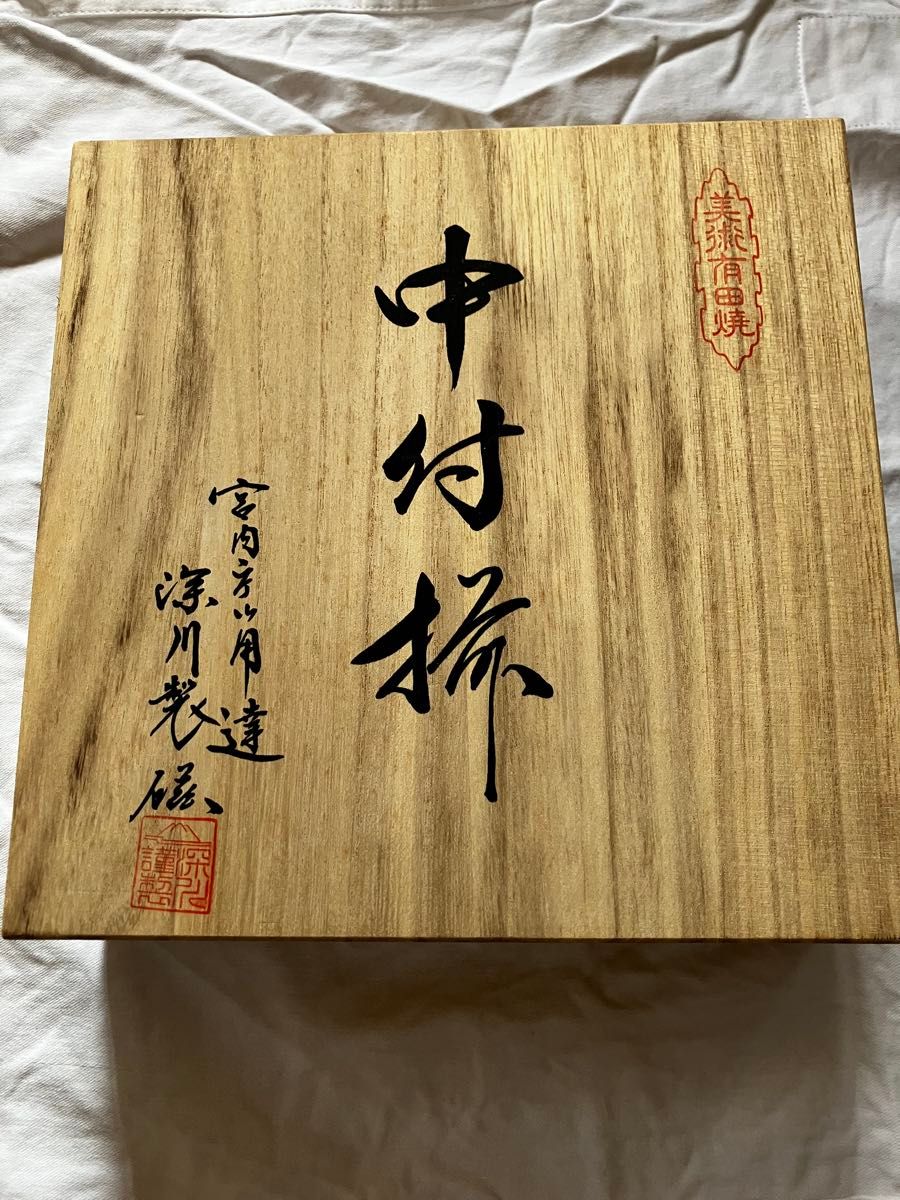 美術有田燒
中付揃
宮内庁御用達
深川製磁
深川
謹製